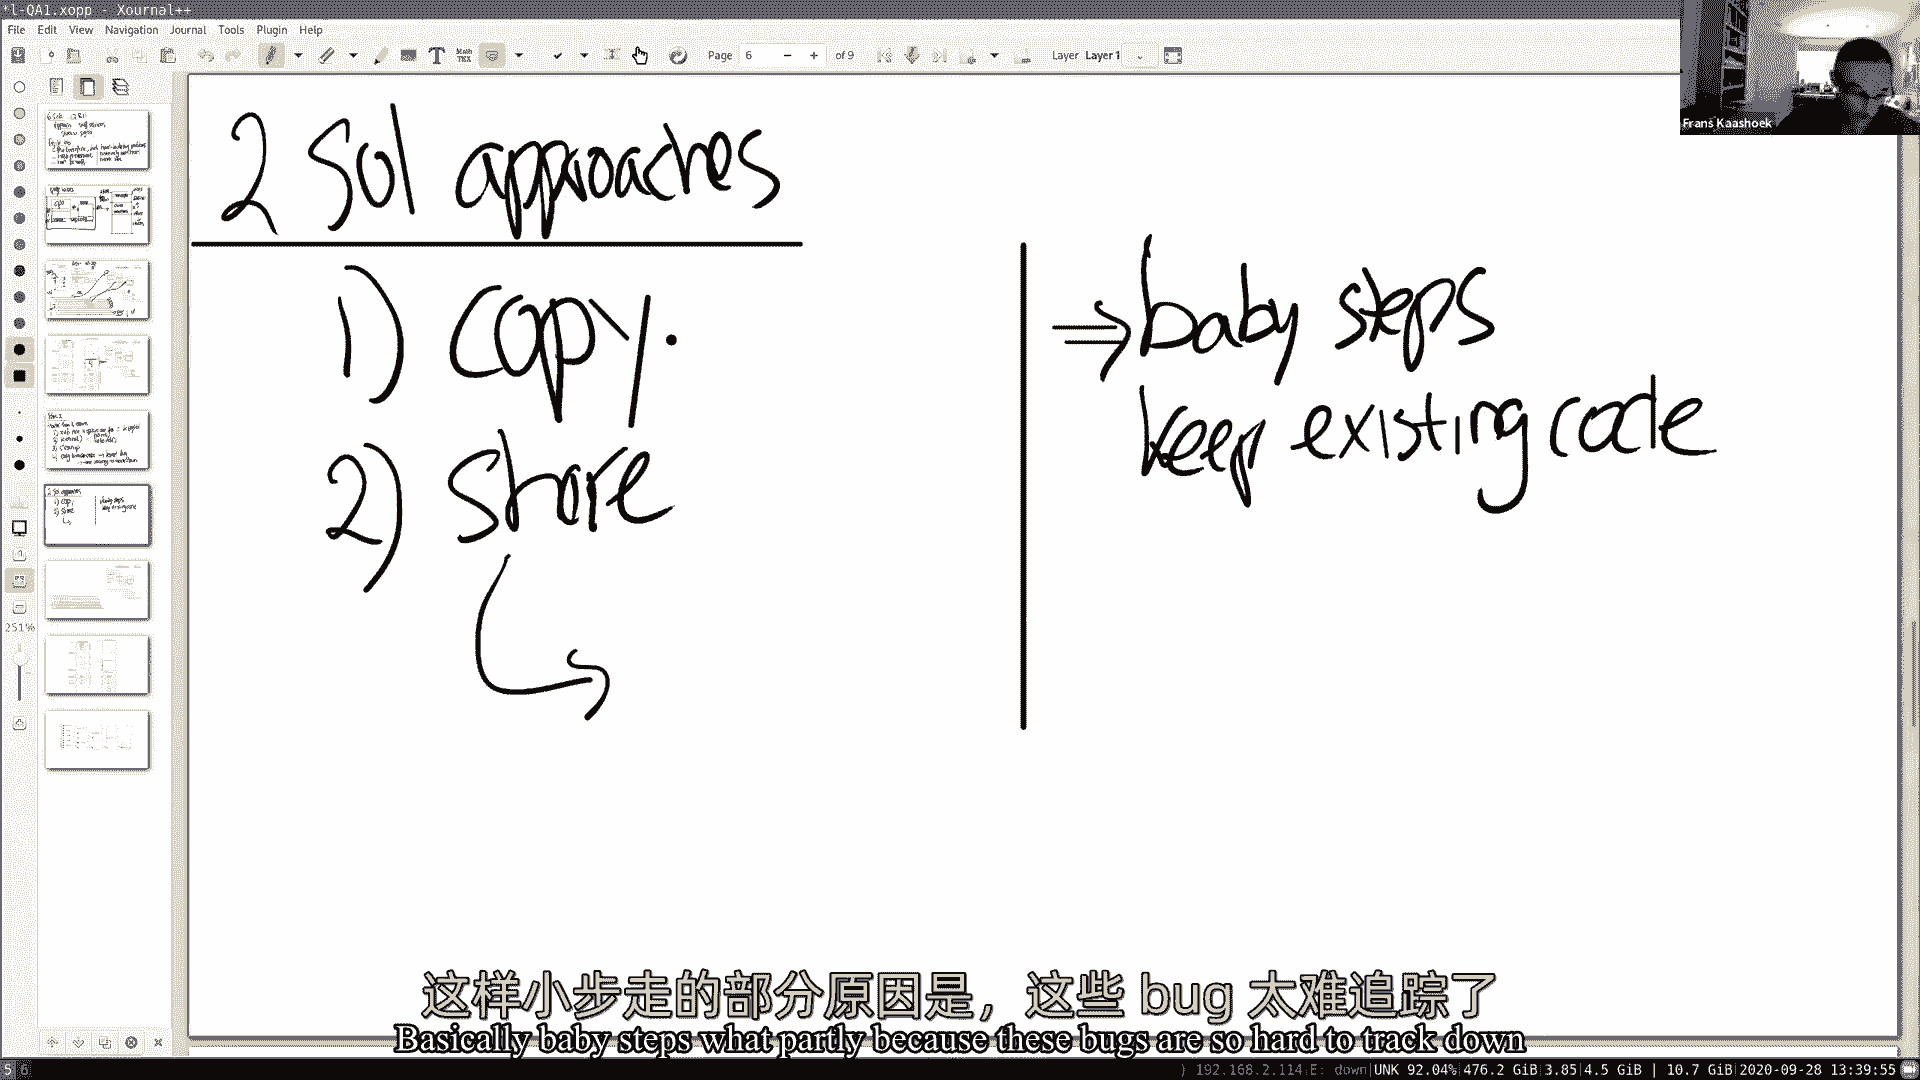 *l-QA1.xopp - Xournal++
File Edit View Navigation Journal Tools Plugin Help
Page 6 of 9 Layer Layer 1
Frans Kaashoek
2 Sol approaches
1) copy.
2) share
⇒ baby steps
keep existing code
251%
这样小步走的部分原因是，这些 bug 太难追踪了
Basically baby steps what partly because these bugs are so hard to track down
5 6 192.168.2.114 E: down|UNK 92.04%|476.2 GiB|3.85|4.5 GiB | 10.7 GiB|2020-09-28 13:39:55